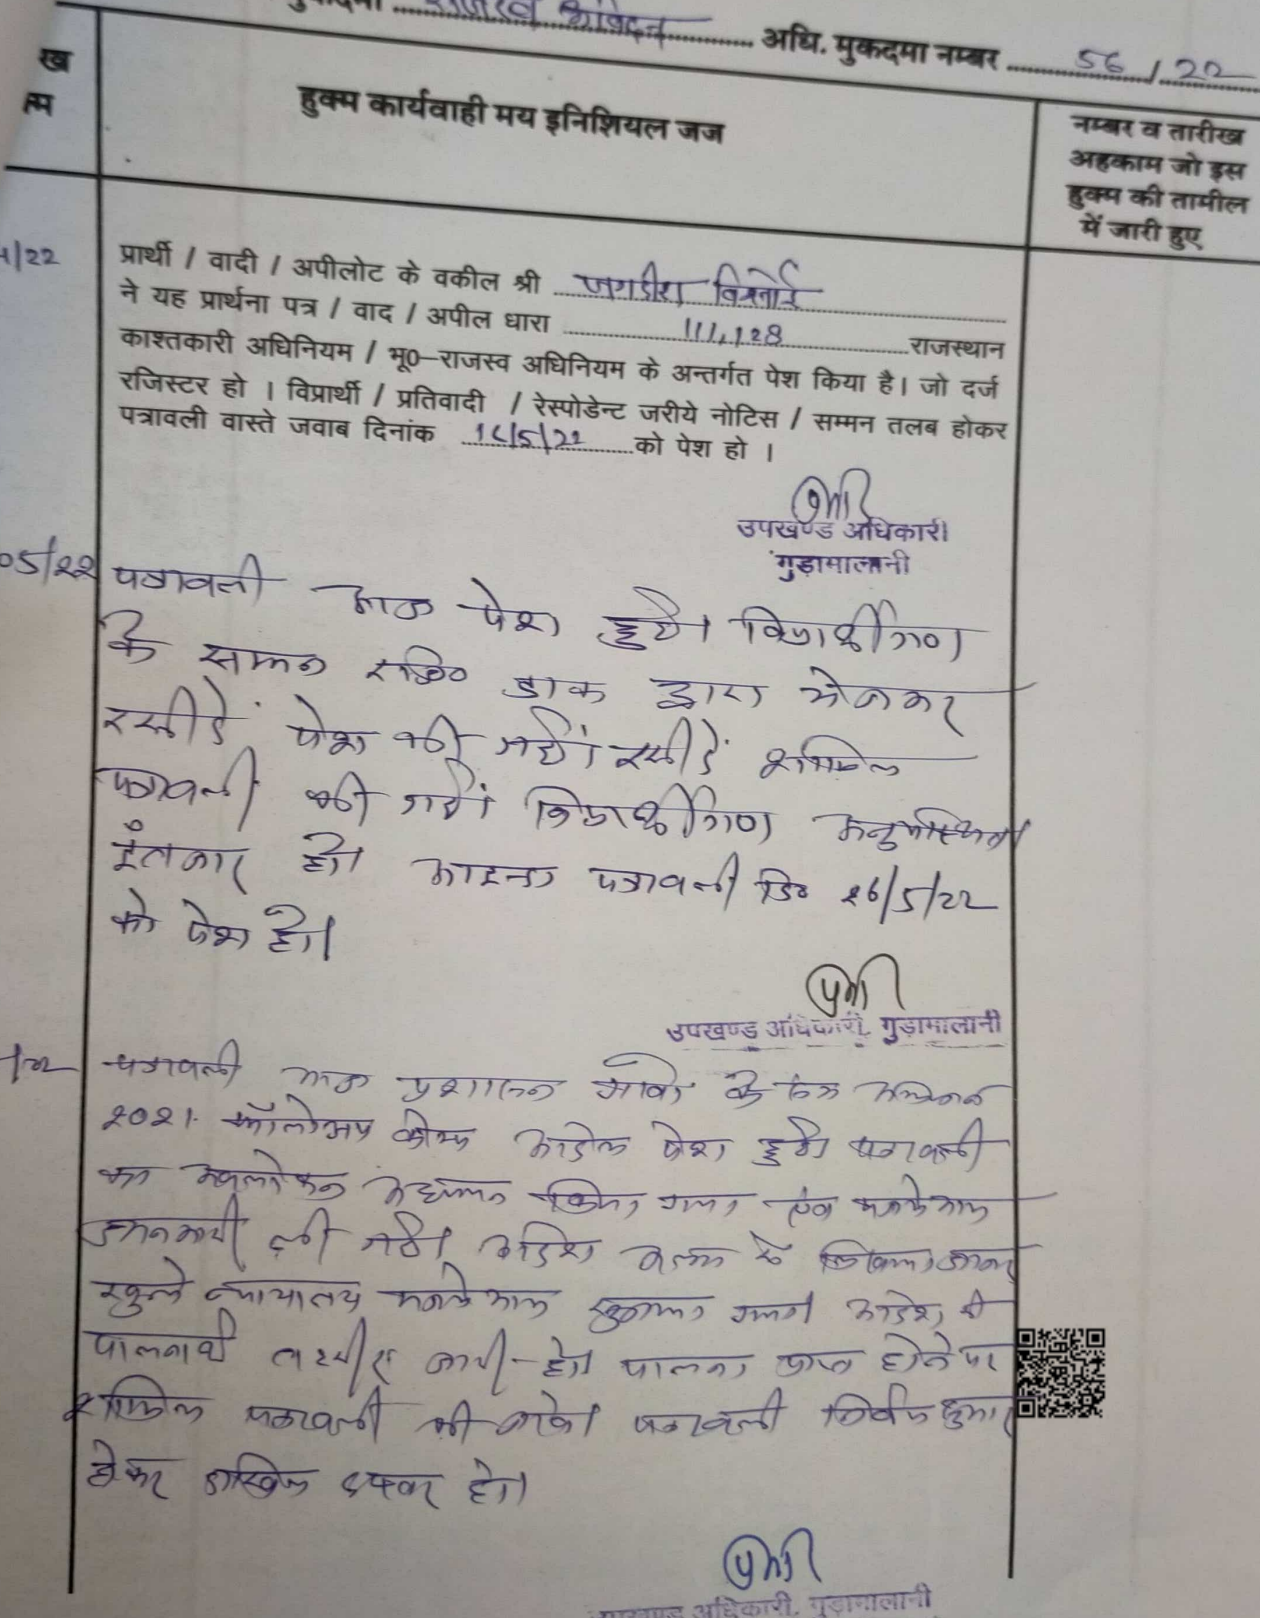 राजस्व आवेदन अधि. मुकदमा नम्बर 56/22
ख
म
हुक्म कार्यवाही मय इनिशियल जज
नम्बर व तारीख
अहकाम जो इस
हुक्म की तामील
में जारी हुए
/22
प्रार्थी / वादी / अपीलोट के वकील श्री जगदीश विश्नोई
ने यह प्रार्थना पत्र / वाद / अपील धारा 111,128 राजस्थान
काश्तकारी अधिनियम / भू०-राजस्व अधिनियम के अन्तर्गत पेश किया है। जो दर्ज
रजिस्टर हो । विप्रार्थी / प्रतिवादी / रेस्पोडेन्ट जरीये नोटिस / सम्मन तलब होकर
पत्रावली वास्ते जवाब दिनांक /5/22 को पेश हो ।
उपखण्ड अधिकारी
गुड़ामालानी
05/22 पत्रावली आज पेश हुयी। विप्रार्थीगण
के सम्मन रजि० डाक द्वारा भेजकर
रसीदें पेश की गयी। रसीदें शामिल
पत्रावली की गयी। विप्रार्थीगण अनुपस्थित
इंतजार हो। आइन्दा पत्रावली दि० 26/5/22
को पेश हो।
उपखण्ड अधिकारी, गुड़ामालानी
पत्रावली आज प्रशासन गांवों के संग अभियान
2021 फॉलोअप कैम्प पेश हुयी। पत्रावली
का अवलोकन अध्ययन किया गया एवं मजमेआम
जानकारी ली गयी। आदेश अलग से लिखा जाकर
खुले न्यायालय मजमेआम सुनाया गया। आदेश की
पालनार्थ तहरीर जारी हो। पालना प्राप्त होने पर
शामिल पत्रावली की जावे। पत्रावली निर्णित शुमार
होकर दाखिल दफ्तर हो।
उपखण्ड अधिकारी, गुड़ामालानी